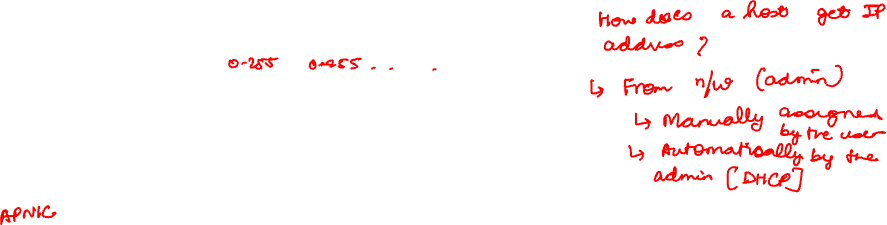 How does a host get IP
address?
0-255 0-255 . . .
↳ From n/w (admin)
↳ Manually assigned
by the user
↳ Automatically by the
admin [DHCP]
APNIC